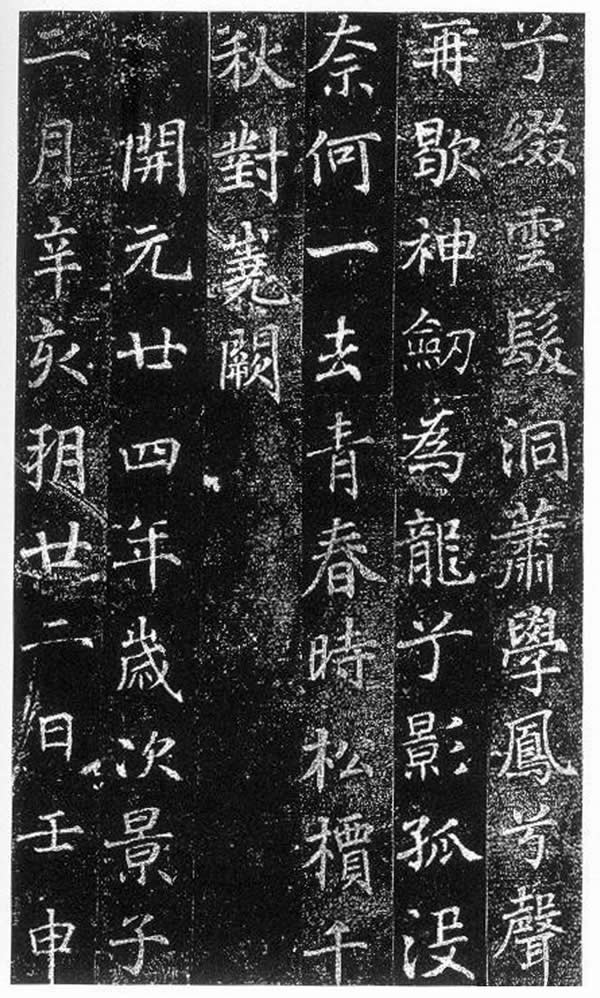 兮綴雲髮洞蕭學鳳兮聲
再歇神劒為龍兮影孤没
奈何一去青春時松檟千
秋對嵩闕
開元廿四年歲次景子
二月辛亥朔廿二日壬申